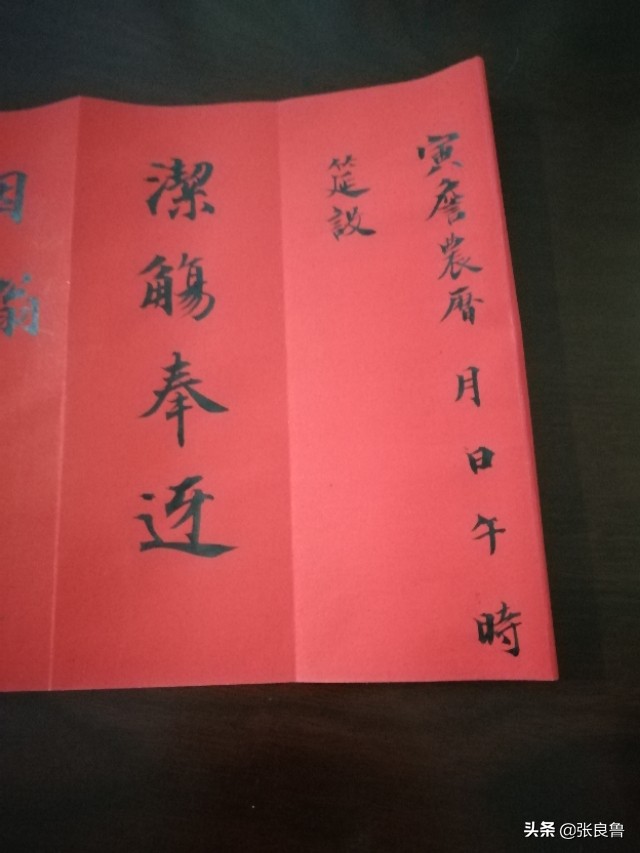 寅詹農暦 月 日 午 時
筵設
潔觴奉迓
翁
头条 @张良鲁